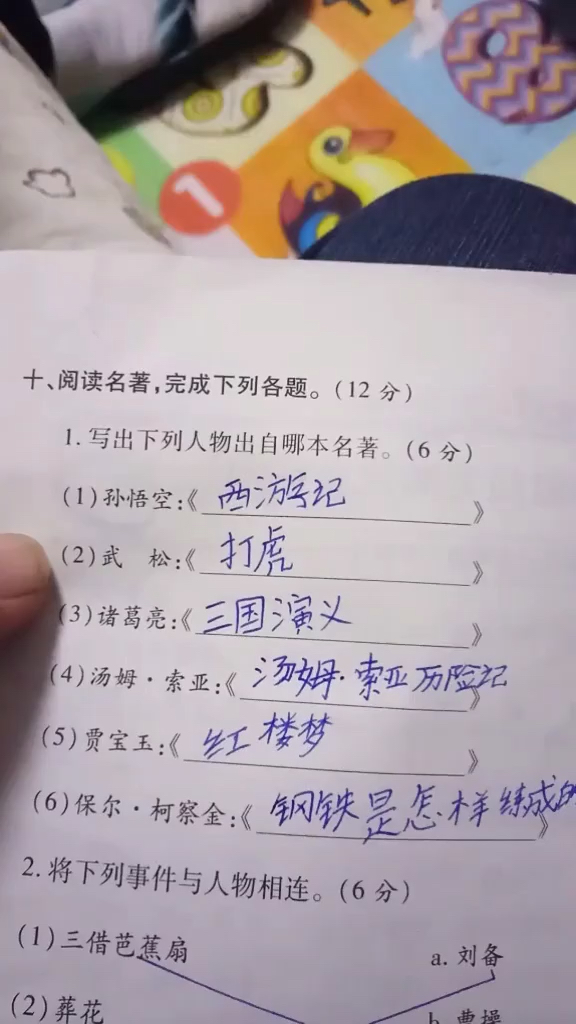 1
十、阅读名著,完成下列各题。(12 分)
1. 写出下列人物出自哪本名著。(6 分)
(1)孙悟空:《 西游记 》
(2)武 松:《 打虎 》
(3)诸葛亮:《 三国演义 》
(4)汤姆·索亚:《 汤姆·索亚历险记 》
(5)贾宝玉:《 红楼梦 》
(6)保尔·柯察金:《 钢铁是怎样练成的 》
2. 将下列事件与人物相连。(6 分)
(1)三借芭蕉扇 a. 刘备
(2)葬花 b. 曹操